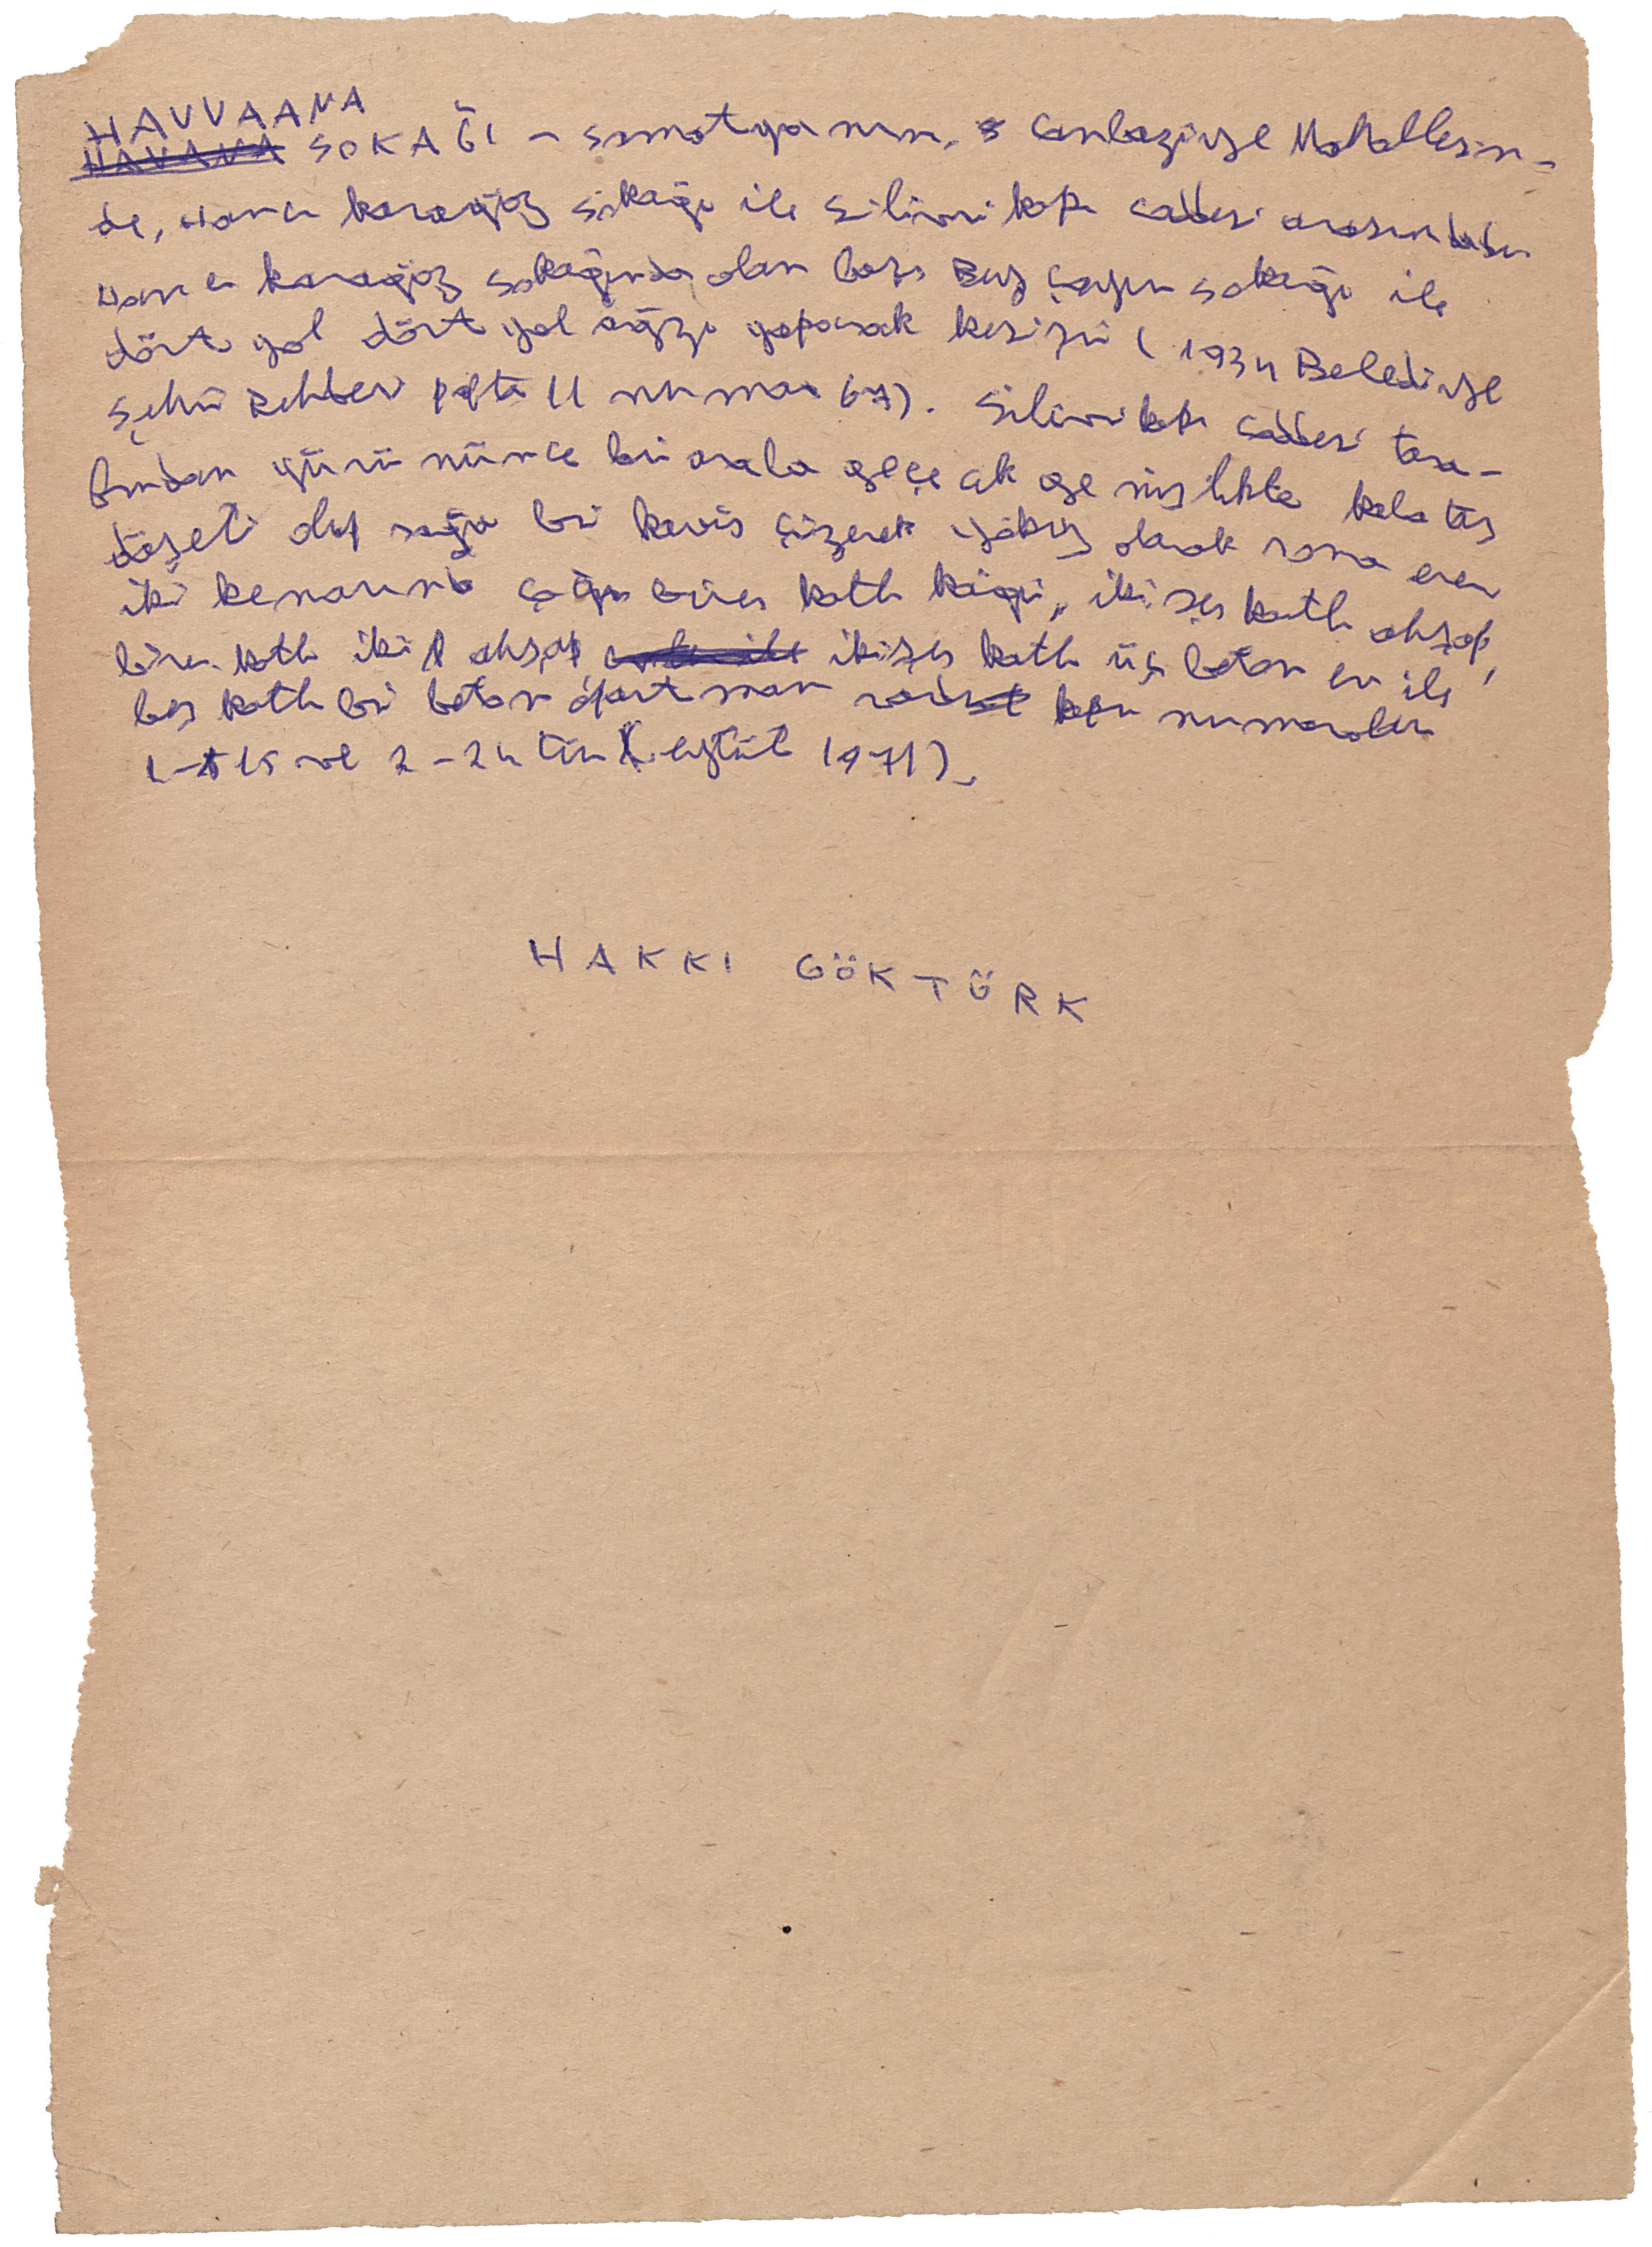 HAVVAANA
HAVANA SOKAĞI – Samatyanın, Canbaziye Mahallesin-
de, Hancı Karagöz Sokağı ile Silivrikapı caddesi arasındadır
Hancı Karagöz Sokağında olan başı Sokağı ile
dört yol dört yol ağzı yaparak kesişir (1934 Belediye
Şehir Rehberi pafta 11 numara 67). Silivrikapı caddesi tara-
fından yürününce bir araba geçecek genişlikte kaba taş
döşeli olup sağa bir kavis çizerek yokuş olarak sona erer
iki kenarında çoğu birer katlı kâgir, ikişer katlı ahşap,
birer katlı iki ahşap ikişer katlı üç beton ev ile
beş katlı bir beton apartman vardır kapı numaraları
1-15 ve 2-24 tür (eylül 1971).
HAKKI GÖKTÜRK